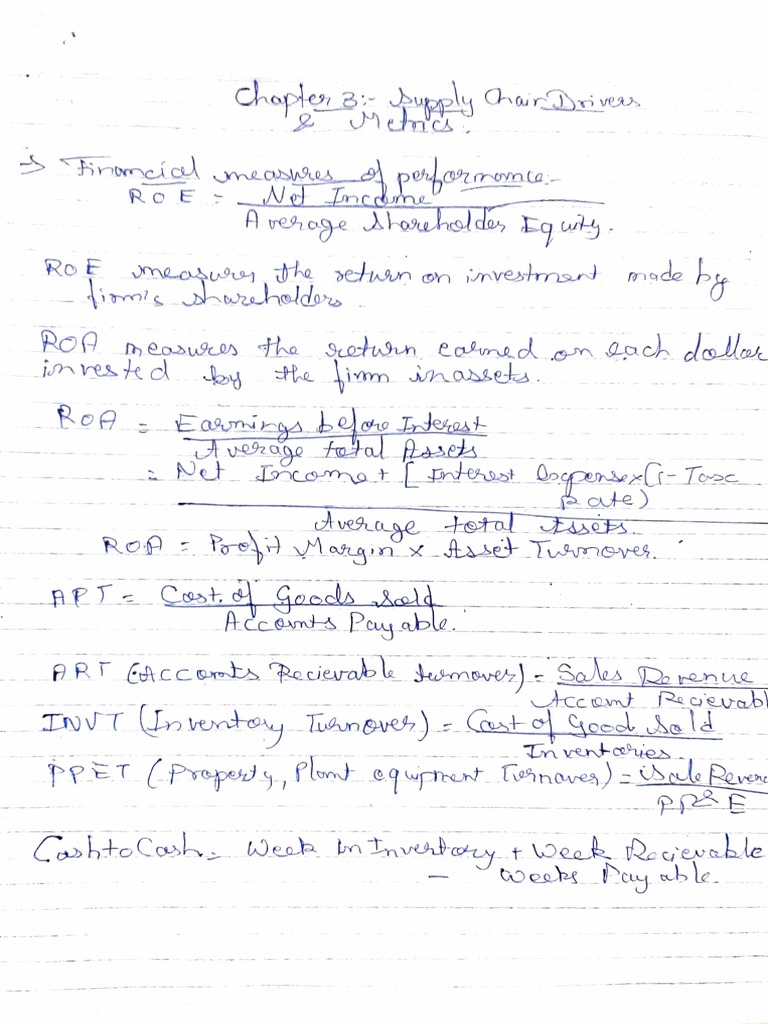 Chapter 3:- Supply Chain Drivers
& Metrics.
→ Financial measures of performance:-
ROE = Net Income
Average Shareholder Equity.
ROE measures the return on investment made by
firm's shareholders
ROA measures the return earned on each dollar
invested by the firm in assets.
ROA = Earnings before Interest
Average total Assets
= Net Income + [ Interest Expense x (1 - Tax
Rate)
Average total Assets.
ROA = Profit Margin x Asset Turnover.
APT = Cost of Goods Sold
Accounts Payable.
ART (Accounts Recievable turnover) = Sales Revenue
Account Recievabl
INVT (Inventory Turnover) = Cost of Good Sold
Inventories.
PPET (Property, Plant equpment Turnover) = Sale Reven
PP&E
Cash to Cash = Week in Inventory + Week Recievable
- Weeks Payable.